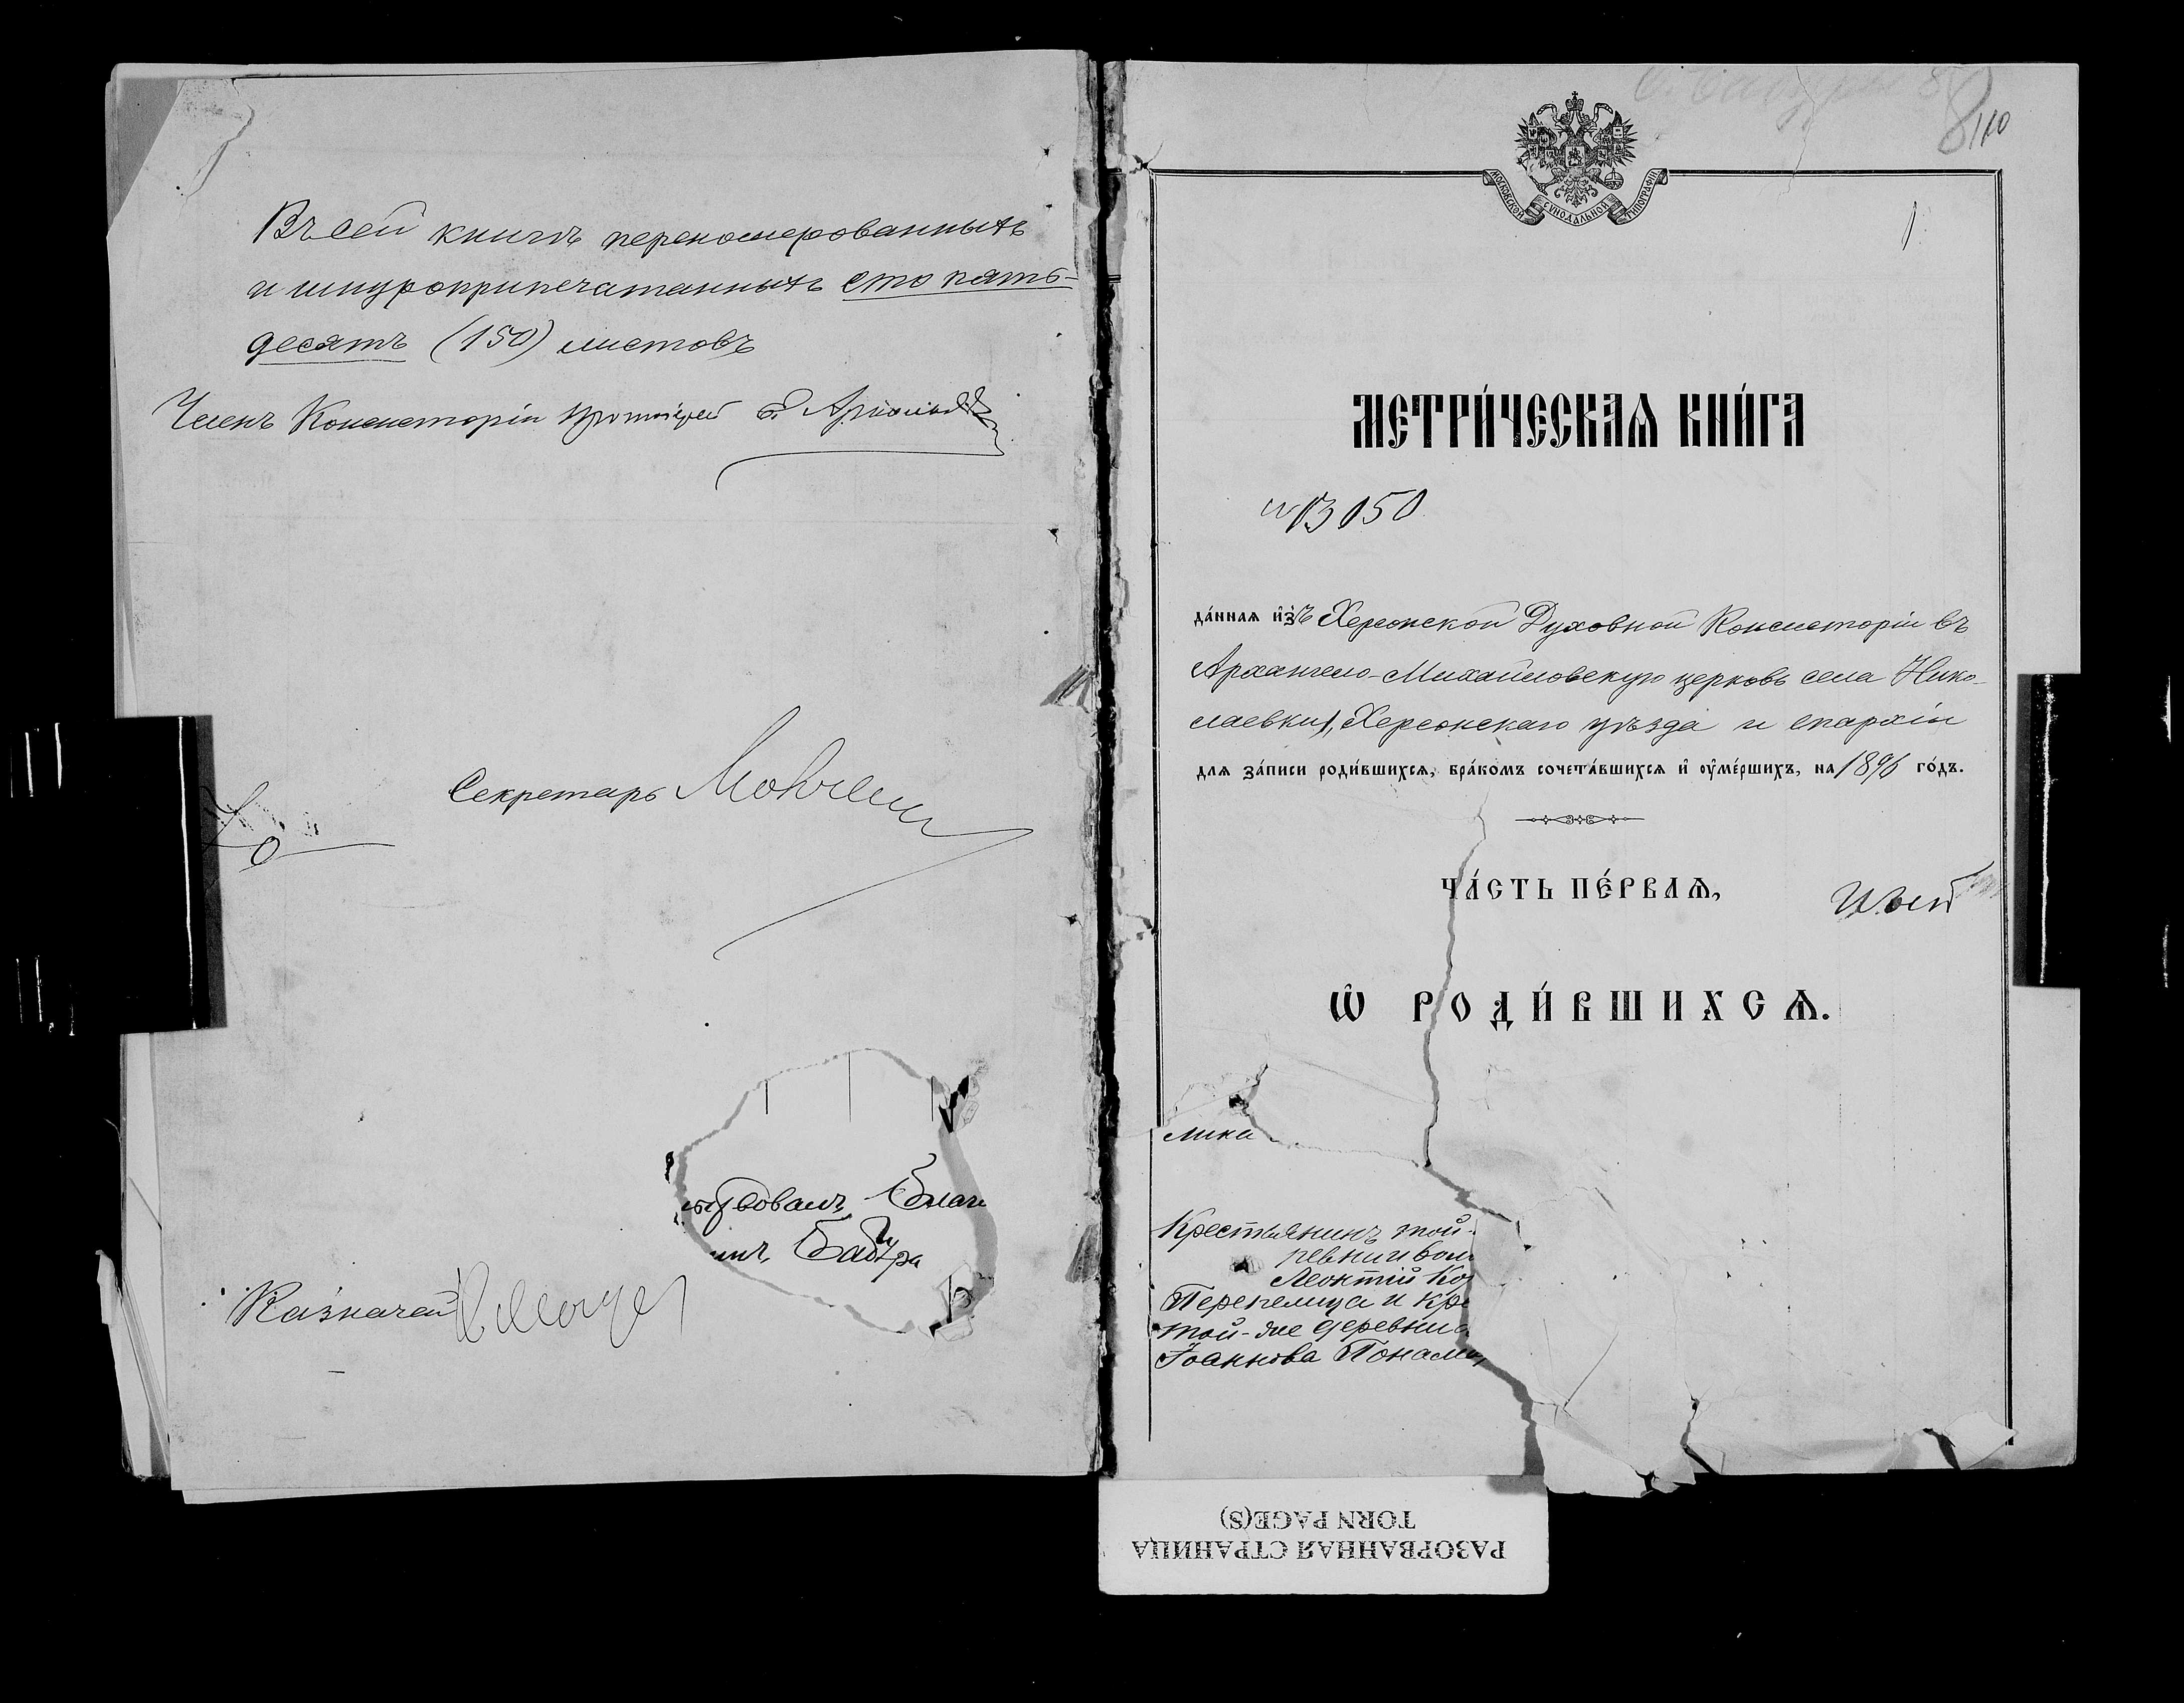 Въ сей книгѣ перенумерованныхъ
и шнуроприпечатанныхъ сто пять-
десятъ (150) листовъ
Членъ Консисторіи Протоіерей
Секретарь
Казначей
МОСКОВСКОЙ СѴНОДАЛЬНОЙ ТИПОГРАФІИ
110
1
МЕТРИ́ЧЕСКАѦ КНИ́ГА
да́ннаѧ и҆зъ Херсонской Духовной Консисторіи въ
Архангело-Михайловскую церковь села Нико-
лаевки 1, Херсонскаго уѣзда и епархіи
длѧ за́писи роди́вшихсѧ, бра́комъ сочета́вшихсѧ и҆ оу҆ме́ршихъ, на 1896 го́дъ.
ЧА́СТЬ ПЕ́РВАѦ,
Ѡ҆ РОДИ́ВШИХСѦ.
лика
Крестьянинъ той-
ревни и вол
Леонтій Ко
Перепелица и кре
той-же деревни
Іоаннова Понама
РАЗОРВАННАЯ СТРАНИЦА
TORN PAGE(S)